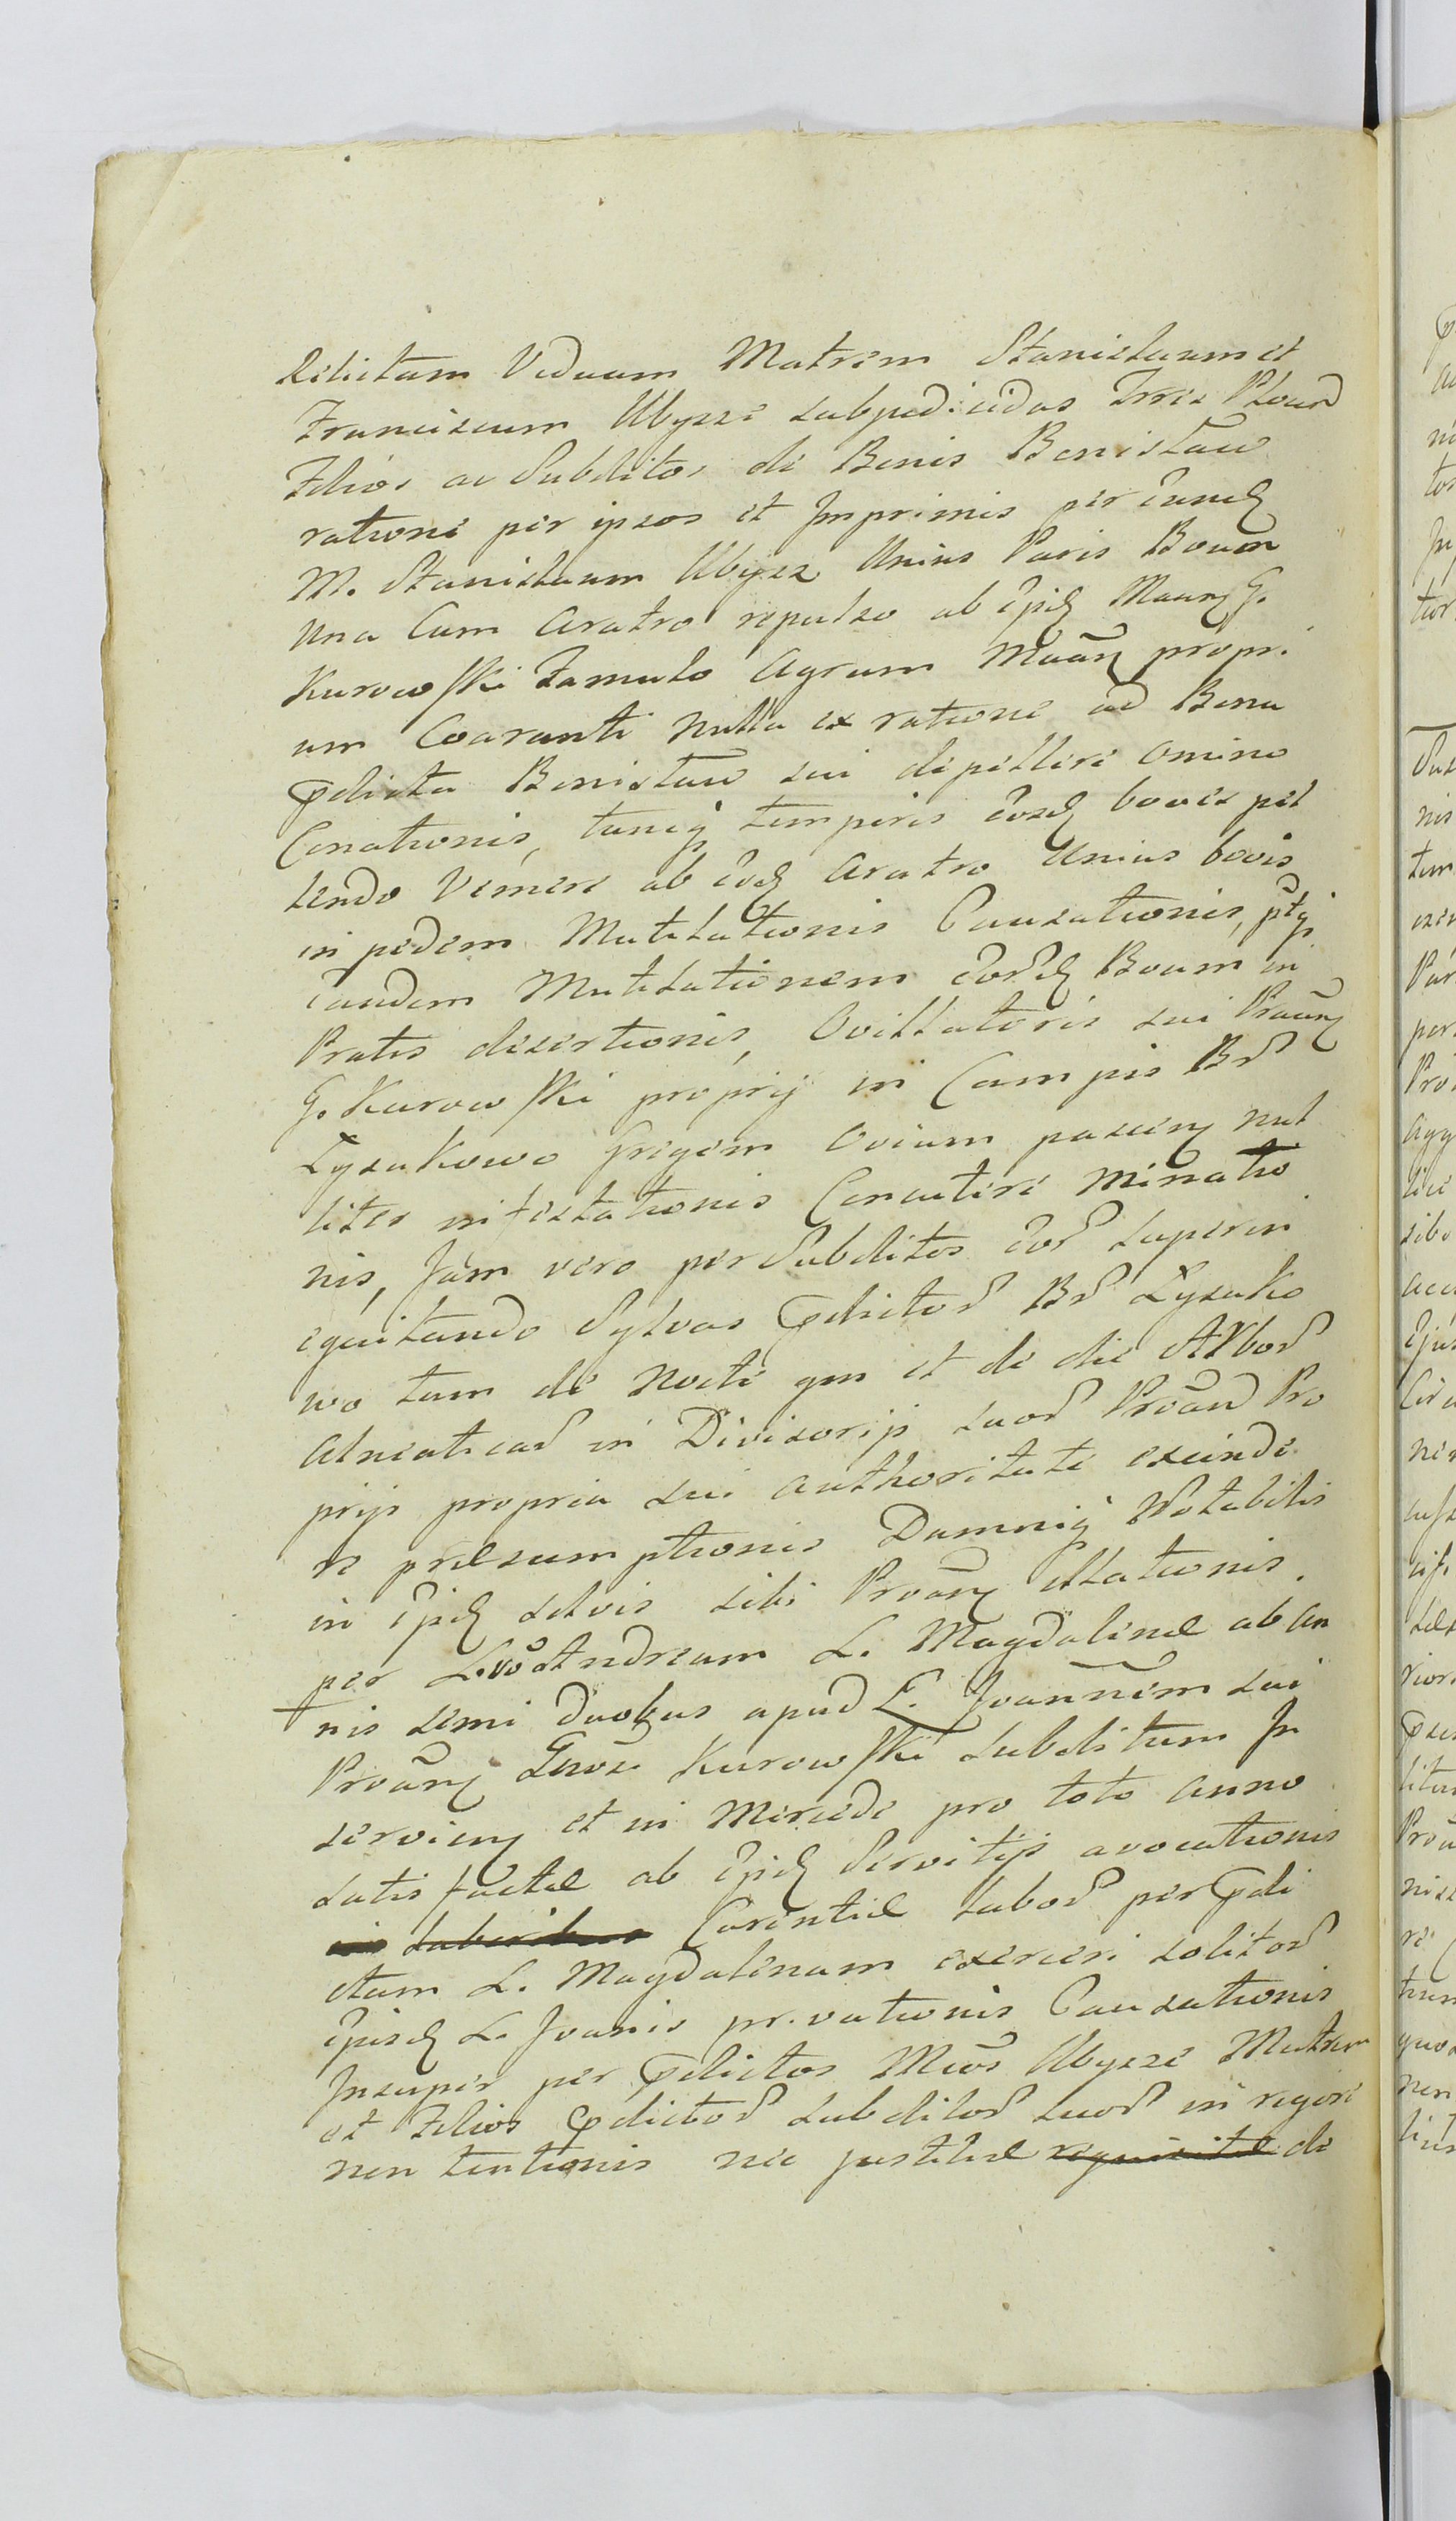 Relictam Viduam Matrem Stanislaum et
Franciscum Ubysze subpedicidas Frres
Filios ac Subditos de Bonis Bonistaw
ratione per ipsos et Imprimis per eund
M. Stanislaum Ubysz Unius Paris Boum
una Cum Aratro repulso ab Epid G.
Kurowski Famulo Agrum propri
um Coaranti nulla ex ratione ad Bona
pdicta Bonistaw sui depellere omino
Conationis, tuncq temporis eosd boves pel
lendo Vomere ab eod Aratro Unius bovis
in pedem Mutilationis Causationis, ptq
eandem Mutilationem eord Boum in
Pratis desertionis, Ovillatoris sui
G. Kurowski proprij in Campis Br
Lysakowo Gregem Ovium pascen nul
liter infestationis Concutere Minatio
nis, Jam vero per Subditos eor superin
equitando Sylvas pdictor Br Lysako
wo tam de Nocte qm et de die Arbor
Alneaticar in Divisorijs suor Pro
prijs propria sui authoritate exeinde
re praesumptionis Damniq Notabilis
in Epid silvis sibi illationis.
per Andream L. Magdalenae ab an
nis semi duobus apud L. Joannem sui
Kurowski subditum In
servien et in Mercede pro toto anno
satisfactae ab Epid Servitijs avocationis
Carentiae Labor per pdi
ctam L. Magdalenam exerceri solitor
Episd L. Joanis privationis Causationis
Insuper per pdictos Ubysze Matrem
et Filios pdictor subditor suor in rigore
non tentionis nec justitiae requisitae de